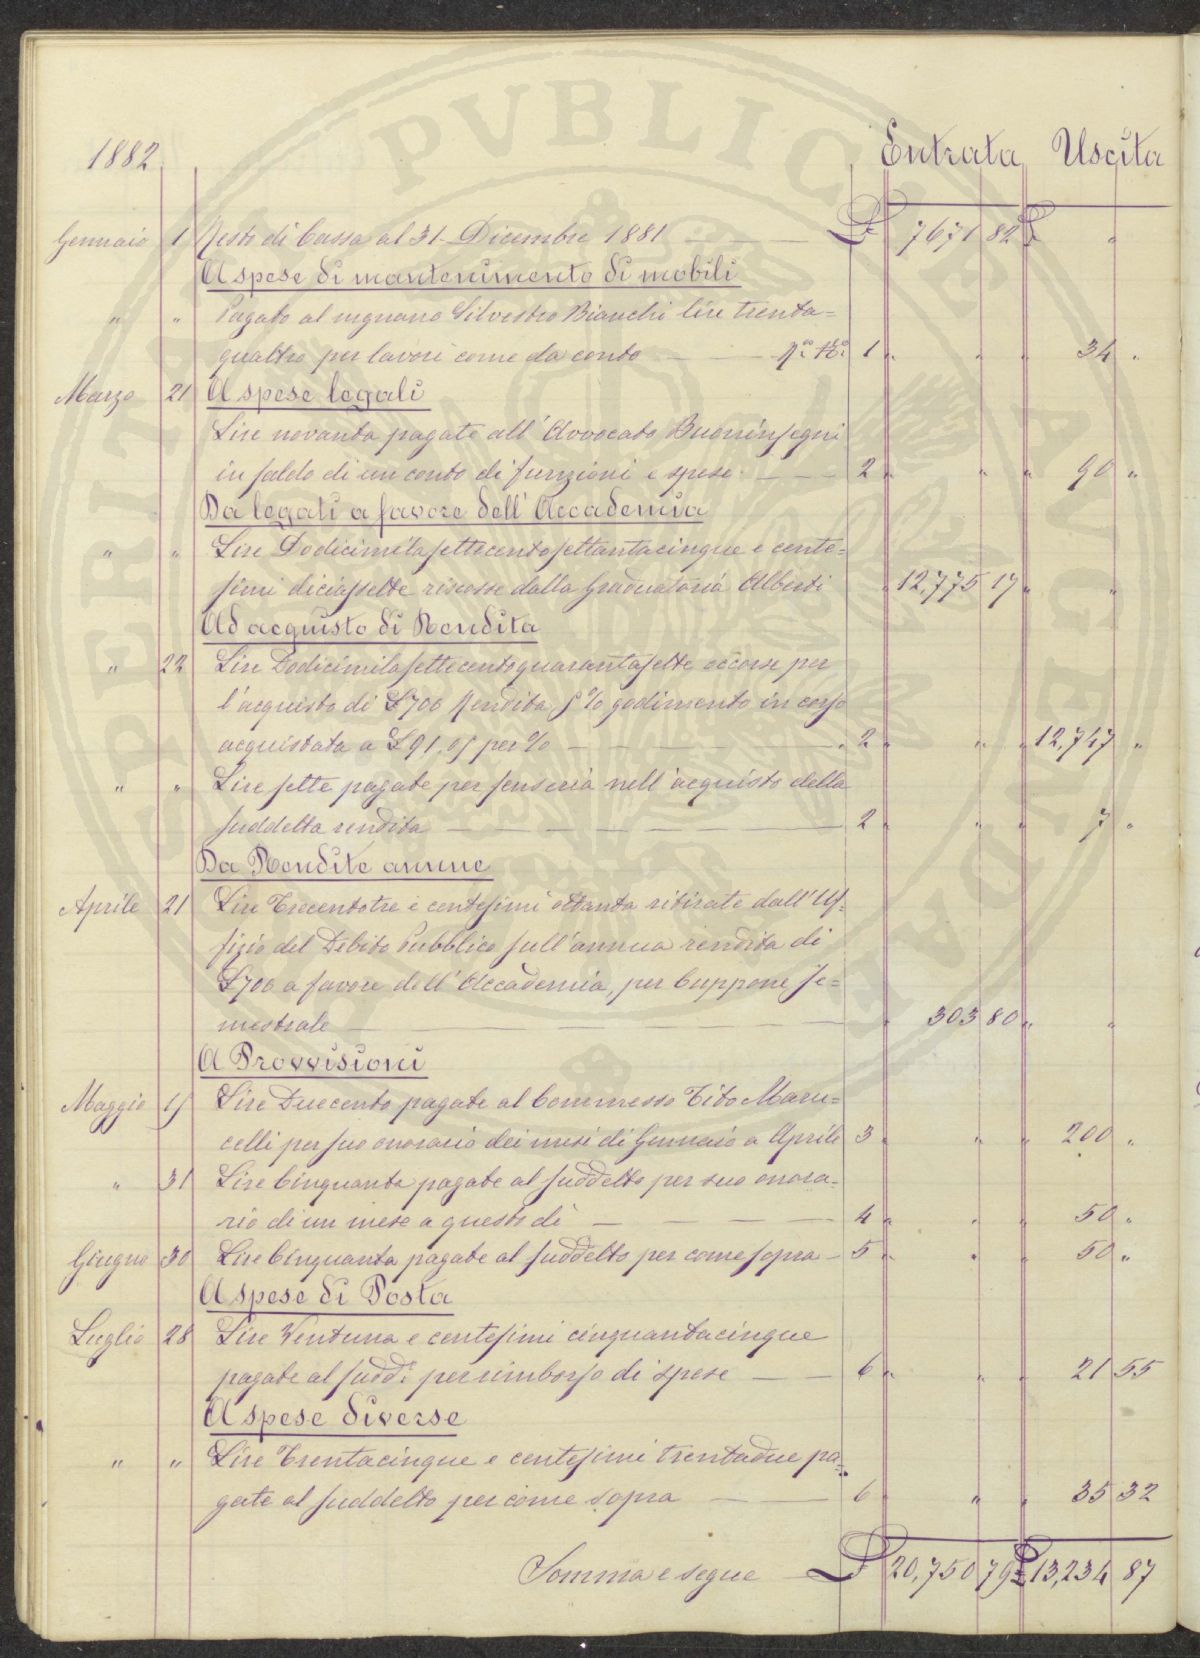 PVBLICAE
PERITATIS AVCENDAE
1882 Entrata Uscita
Gennaio 1 Resto di Cassa al 31 Dicembre 1881 — — — £ 7671 82 £ "
A spese di mantenimento di mobili
" " Pagato al magnano Silvestro Bianchi lire trenta=
quattro per lavori come da conto — — 1 " " " 34 "
Marzo 21 A spese legali
Lire novanta pagate all'Avvocato Buoninsegni
in saldo di un conto di funzioni e spese — — — 2 " " " 90 "
Da legati a favore dell'Accademia
" " Lire Dodicimilasettecentosettantacinque e cente=
simi diciassette riscosse dalla Graduatoria Alberti " 12,775 17 " "
Ad acquisto di Rendita
" 22 Lire Dodicimilasettecentoquarantasette occorse per
l'acquisto di £700 Rendita 5% godimento in corso
acquistata a £91.05 per % — — — — — 2 " " " 12,747 "
" " Lire sette pagate per senseria nell'acquisto della
suddetta rendita — — — — — 2 " " " 7 "
Da Rendite annue
Aprile 21 Lire Trecentotre e centesimi ottanta ritirate dall'Uf=
fizio del Debito Pubblico sull'annua rendita di
£700 a favore dell'Accademia, per Cuppone se=
mestrale — — — " 303 80 " "
A Provvisioni
Maggio 15 Lire Duecento pagate al Commesso Tito Maru=
celli per suo onorario dei mesi di Gennaio a Aprile 3 " " " 200 "
" 31 Lire Cinquanta pagate al suddetto per suo onora=
rio di un mese a questo dì — — — — 4 " " " 50 "
Giugno 30 Lire Cinquanta pagate al suddetto per come sopra — 5 " " " 50 "
A spese di Posta
Luglio 28 Lire Ventuna e centesimi cinquantacinque
pagate al sudd: per rimborso di spese — — 6 " " " 21 55
A spese diverse
" " Lire Trentacinque e centesimi trentadue pa=
gate al suddetto per come sopra — — 6 " " " 35 32
Somma e segue — £ 20,750 79 £ 13,234 87